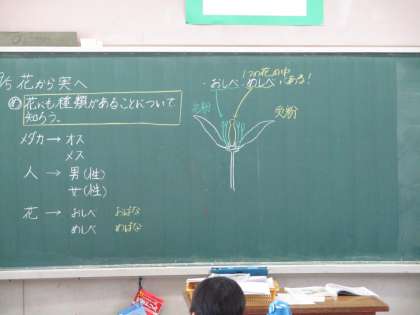 9/5 花から実へ
め 花にも種類があることについて
知ろう。
メダカ → オス
メス
人 → 男(性)
女(性)
花 → おしべ おばな
めしべ めばな
1つの花の中
・おしべ・めしべ・ある!
花粉
受粉